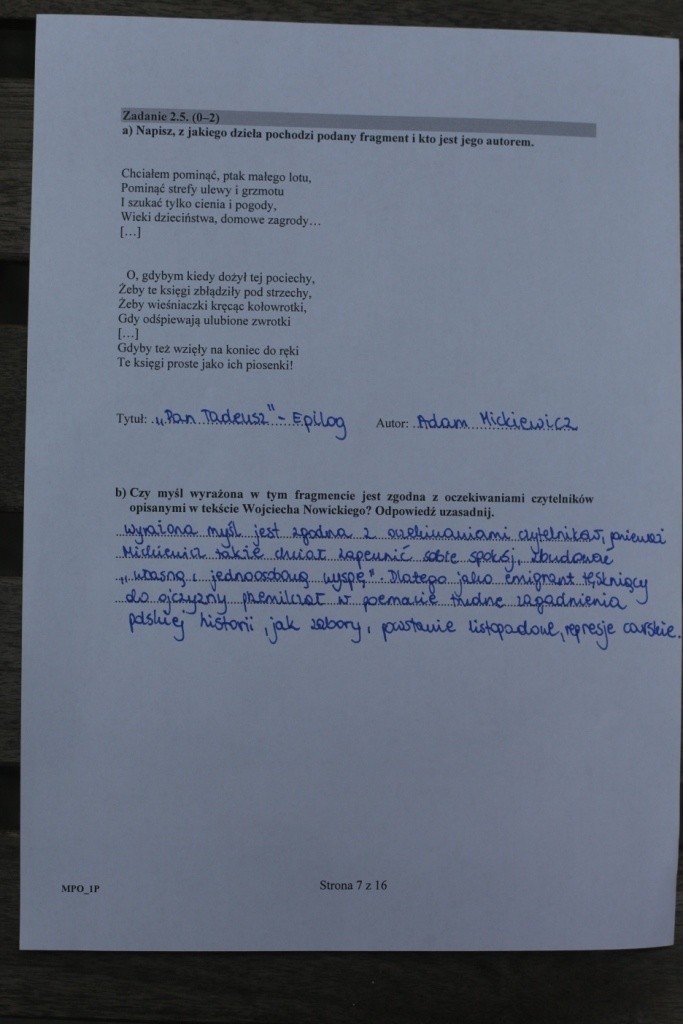 Zadanie 2.5. (0–2)
a) Napisz, z jakiego dzieła pochodzi podany fragment i kto jest jego autorem.
Chciałem pominąć, ptak małego lotu,
Pominąć strefy ulewy i grzmotu
I szukać tylko cienia i pogody,
Wieki dzieciństwa, domowe zagrody…
[…]
O, gdybym kiedy dożył tej pociechy,
Żeby te księgi zbłądziły pod strzechy,
Żeby wieśniaczki kręcąc kołowrotki,
Gdy odśpiewają ulubione zwrotki
[…]
Gdyby też wzięły na koniec do ręki
Te księgi proste jako ich piosenki!
Tytuł: „Pan Tadeusz" - Epilog Autor: Adam Mickiewicz
b) Czy myśl wyrażona w tym fragmencie jest zgodna z oczekiwaniami czytelników
opisanymi w tekście Wojciecha Nowickiego? Odpowiedź uzasadnij.
Wyrażona myśl jest zgodna z oczekiwaniami czytelników, ponieważ
Mickiewicz także chciał zapewnić sobie spokój, zbudować
„własną, jednoosobową wyspę". Dlatego jako emigrant tęskniący
do ojczyzny przemilczał w poemacie trudne zagadnienia
polskiej historii, jak zabory, powstanie listopadowe, represje carskie.
MPO_1P
Strona 7 z 16